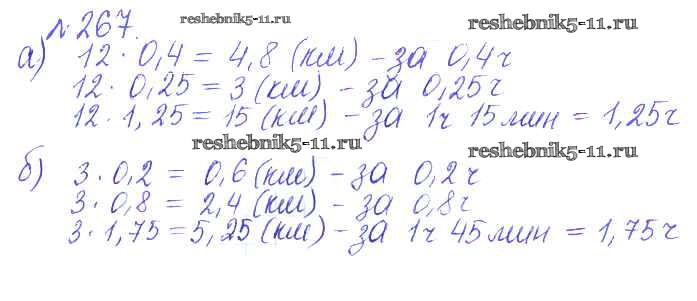 №267. reshebnik5-11.ru reshebnik5-11.ru
а) 12 · 0,4 = 4,8 (км) – за 0,4 ч
12 · 0,25 = 3 (км) – за 0,25 ч
12 · 1,25 = 15 (км) – за 1ч 15 мин = 1,25 ч
reshebnik5-11.ru reshebnik5-11.ru
б) 3 · 0,2 = 0,6 (км) – за 0,2 ч
3 · 0,8 = 2,4 (км) – за 0,8 ч
3 · 1,75 = 5,25 (км) – за 1ч 45 мин = 1,75 ч